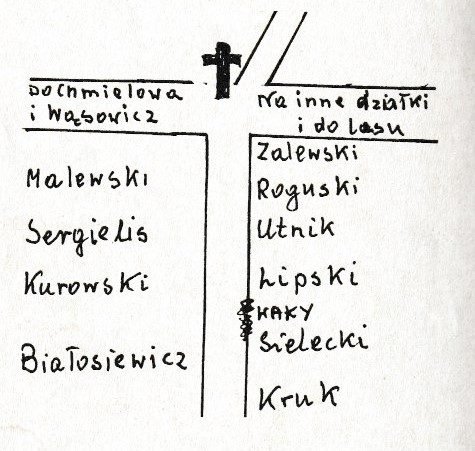 Do Chmielowa
i Wąsowicz
Na inne działki
i do lasu
Malewski
Sergielis
Kurowski
Białosiewicz
Zalewski
Roguski
Utnik
Lipski
KAKY
Sielecki
Kruk